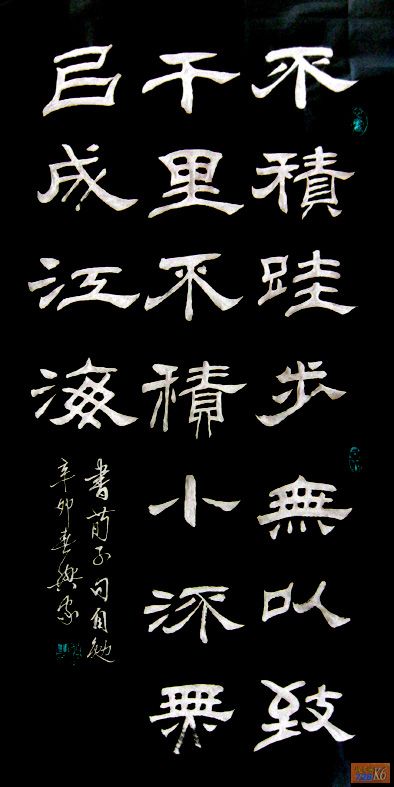 不積跬步無以致
千里不積小流無
㠯成江海
書荀子句自勉
辛卯春
K6